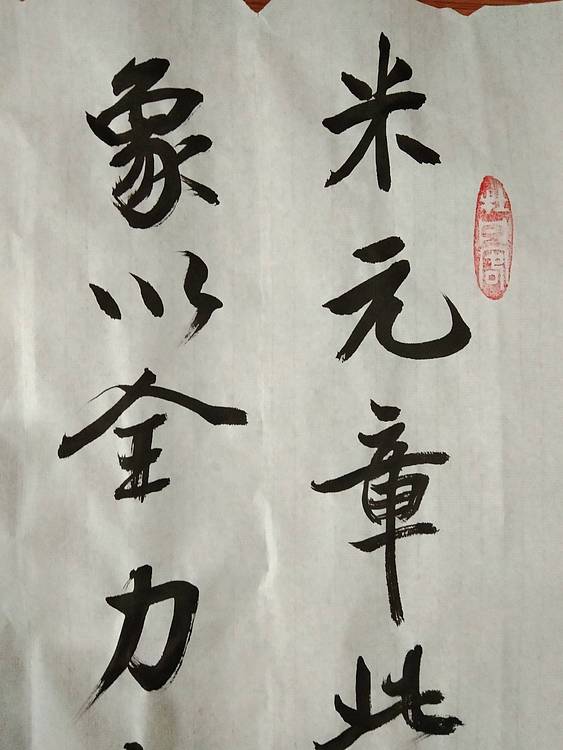 米元章此
象以全力